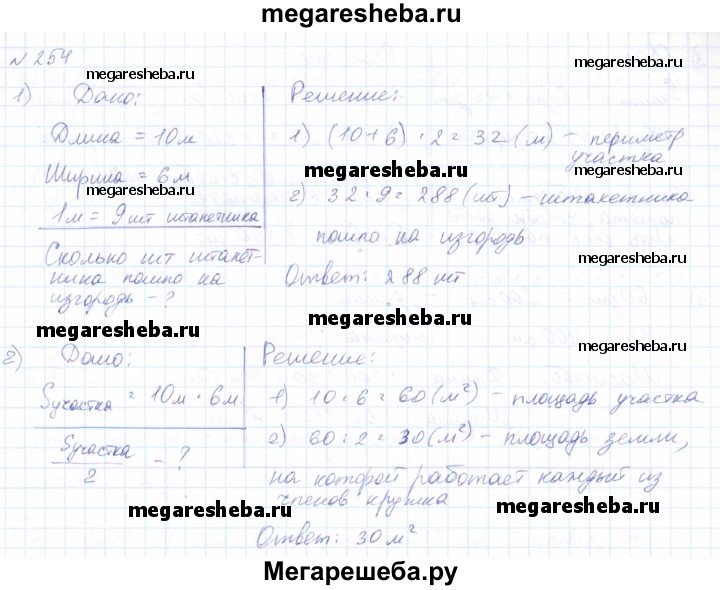 megaresheba.ru
№ 254
megaresheba.ru
megaresheba.ru
1) Дано:
Решение:
Длина = 10м
1) (10+6) · 2 = 32 (м) – периметр
участка
Ширина = 6м
megaresheba.ru
megaresheba.ru
1м = 9 шт штакетника
2) 32 · 9 = 288 (шт) – штакетника
пошло на изгородь
Сколько шт штакет-
ника пошло на
изгородь – ?
Ответ: 288 шт
megaresheba.ru
megaresheba.ru
megaresheba.ru
2) Дано:
Решение:
megaresheba.ru
Sучастка = 10м · 6м
1) 10 · 6 = 60 (м²) – площадь участка
Sучастка
2
– ?
2) 60 : 2 = 30 (м²) – площадь земли,
на которой работает каждый из
членов кружка
megaresheba.ru
megaresheba.ru
Ответ: 30 м²
Мегарешеба.ру